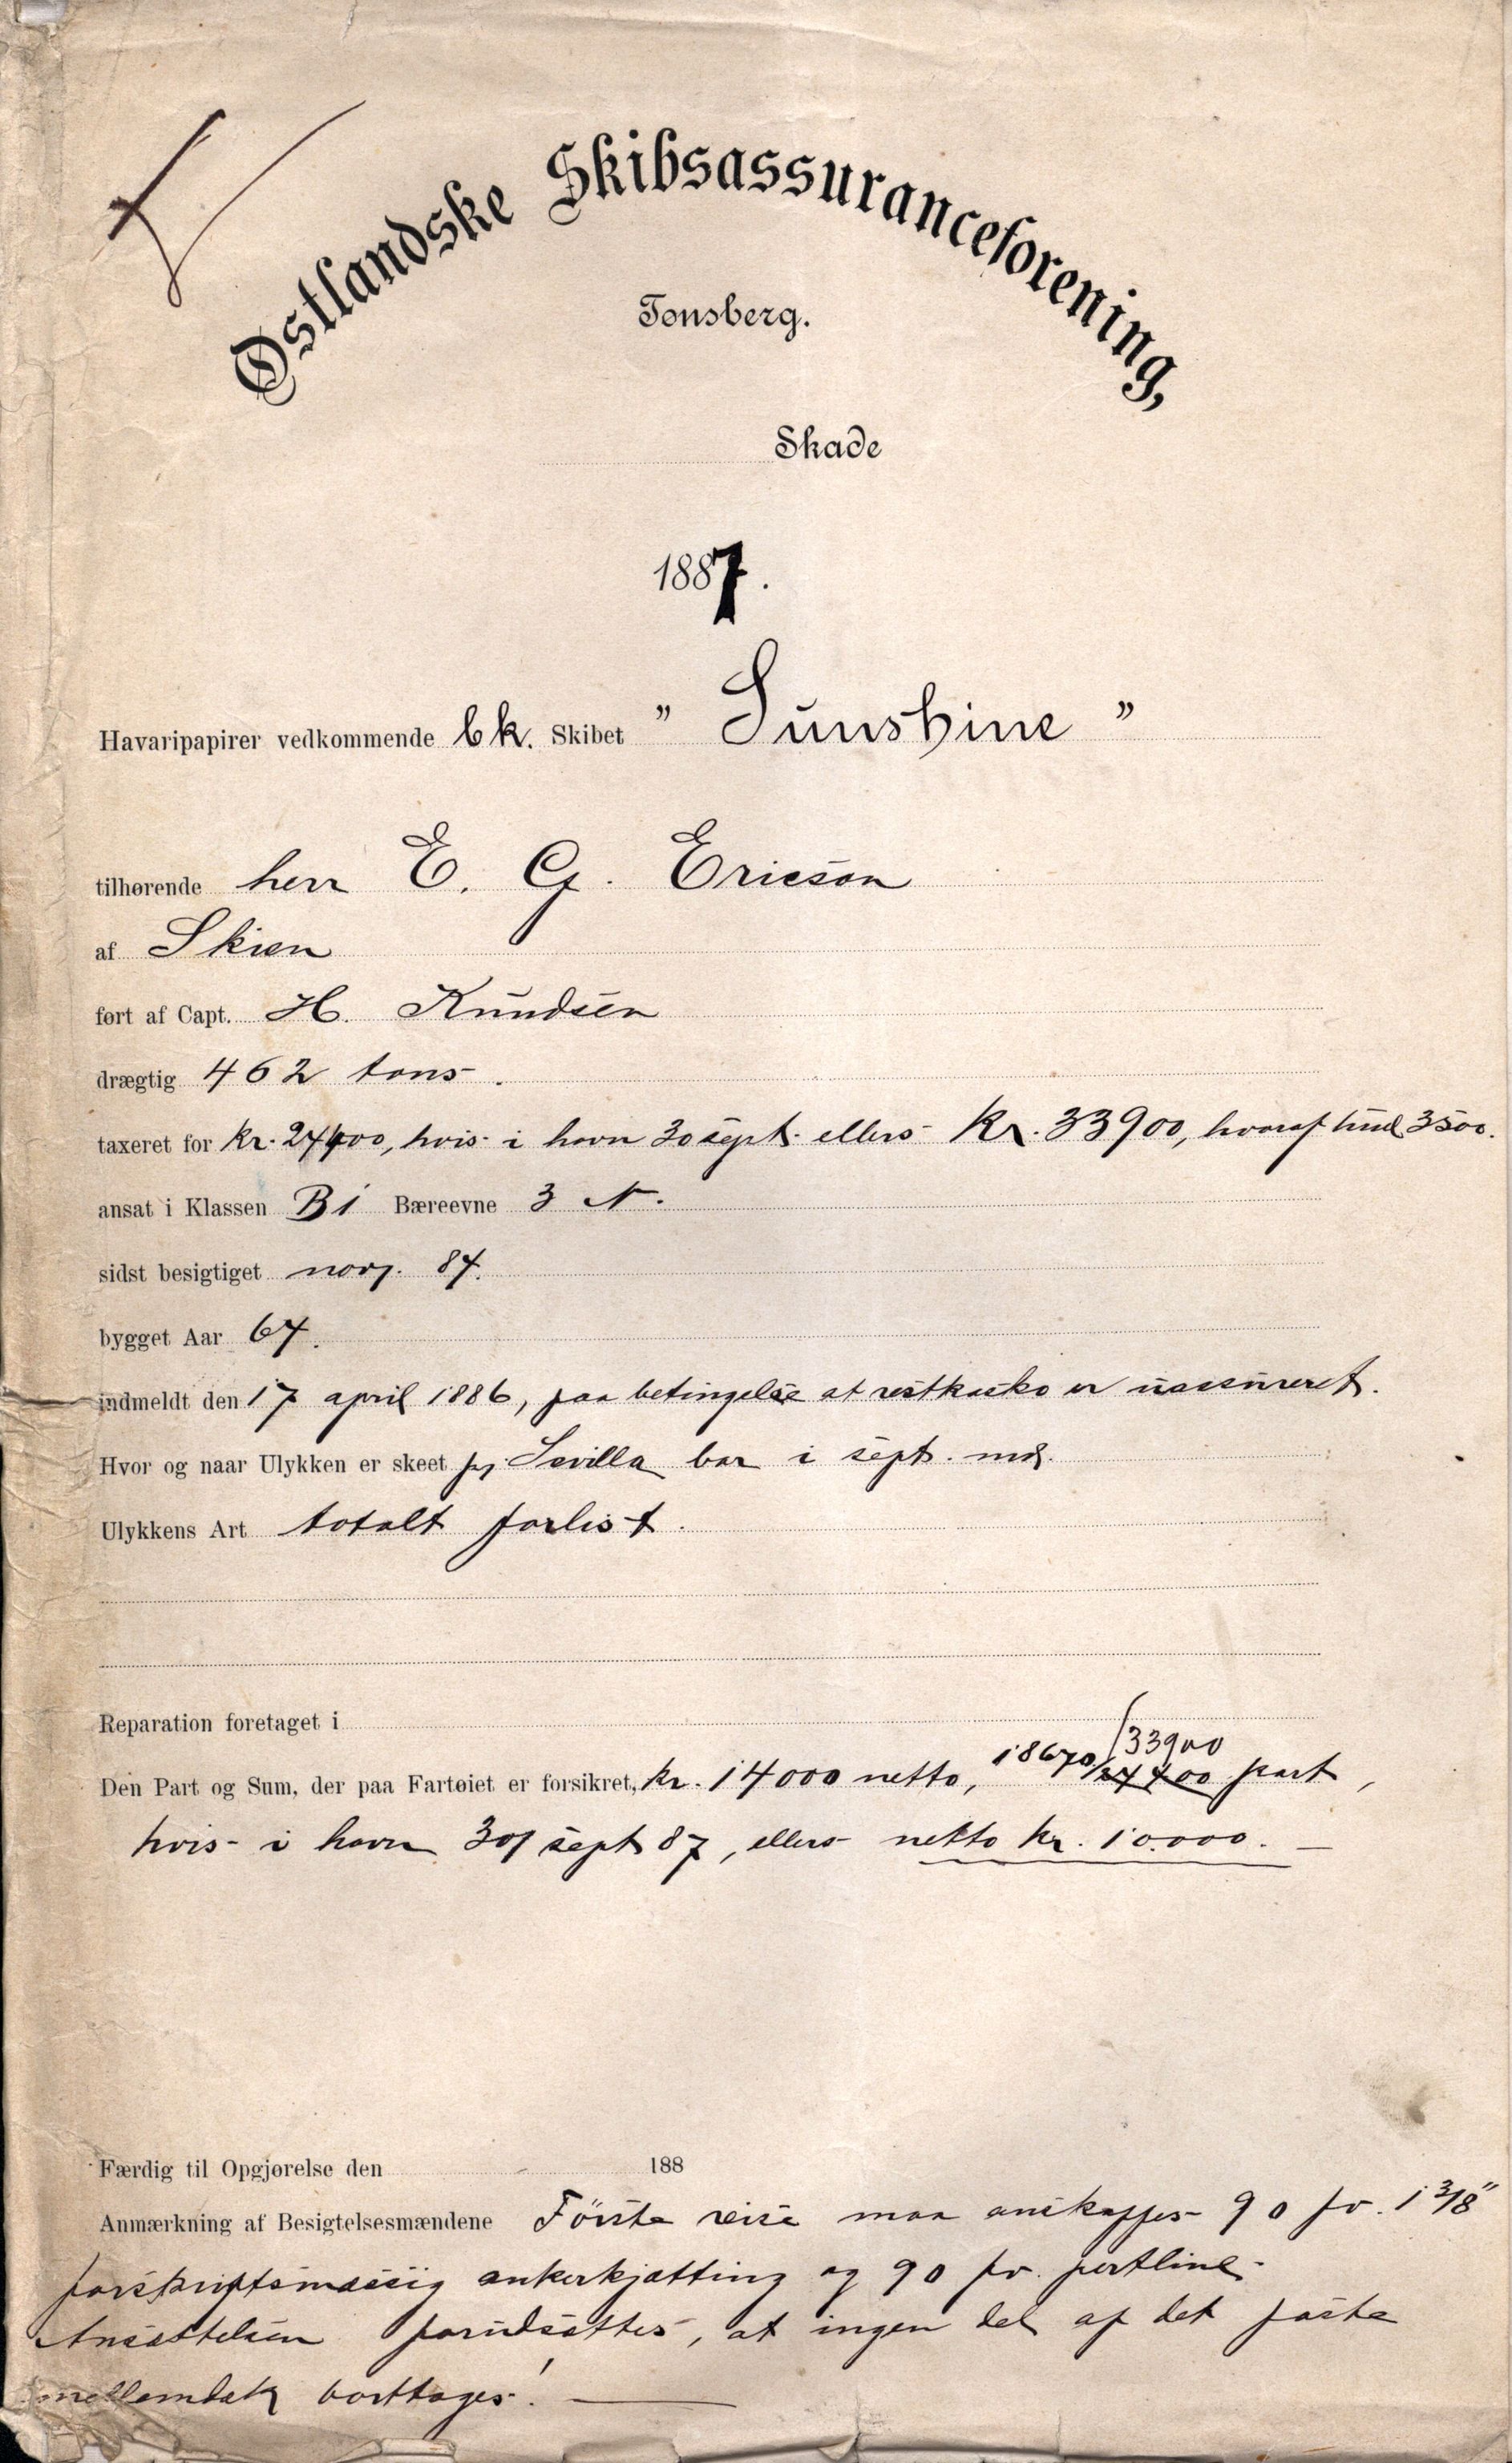 Østlandske Skibsassuranceforening,
Tønsberg.
Skade
1887.
Havaripapirer vedkommende bk. Skibet " Sunshine "
tilhørende herr E. G. Ericson
af Skien
ført af Capt. H. Knudsen
drægtig 462 tons.
taxeret for kr. 27400, hvis i havn 30 sept. ellers Kr. 33900, hvoraf hud 3500.
ansat i Klassen B1 Bæreevne 3 N.
sidst besigtiget 87.
bygget Aar 67.
indmeldt den 17 april 1886, paa betingelse at restkasko er uassureret.
Hvor og naar Ulykken er skeet Sevilla bar i sept. md.
Ulykkens Art totalt forlist.
Reparation foretaget i
33900
Den Part og Sum, der paa Fartøiet er forsikret, kr. 14000 netto, 18670/27400 part,
hvis i havn 30/ sept 87, ellers netto kr. 10.000. —
Færdig til Opgjørelse den 188
Anmærkning af Besigtelsesmændene Förste reise maa anskaffes 90 fv. 1 3/8"
forskriftsmæssig ankerkjætting og 90 fv. pertline
Ansættelsen forudsættes, at ingen del af det faste
mellemdæk borttages! —